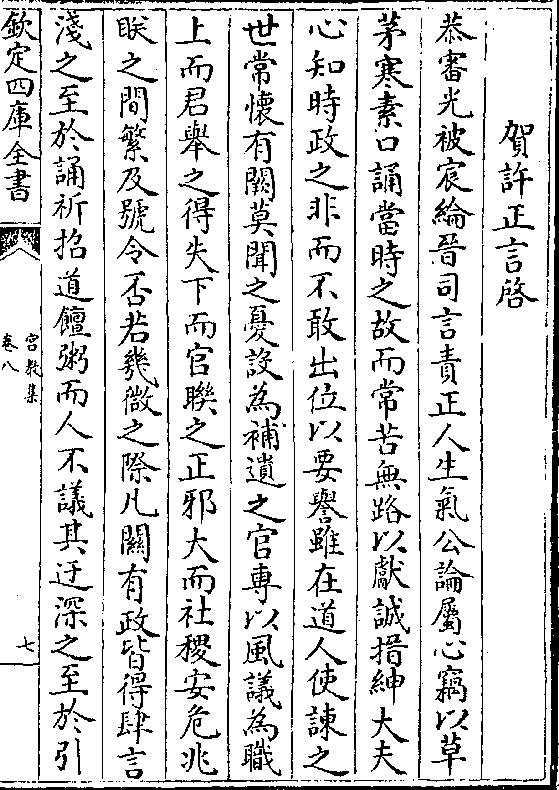 賀許正言啓
恭審光被宸綸晉司言責正人生氣公論屬心竊以草
茅寒素口誦當時之故而常苦無路以獻誠搢紳大夫
心知時政之非而不敢出位以要譽雖在道人使諫之
世常懷有闕莫聞之憂設為補遺之官專以風議為職
上而君舉之得失下而官聯之正邪大而社稷安危兆
朕之間繁及號令否若幾微之際凡關有政皆得肆言
淺之至於誦祈招道饘粥而人不議其迂深之至於引
欽定四庫全書
宫教集
卷八
七